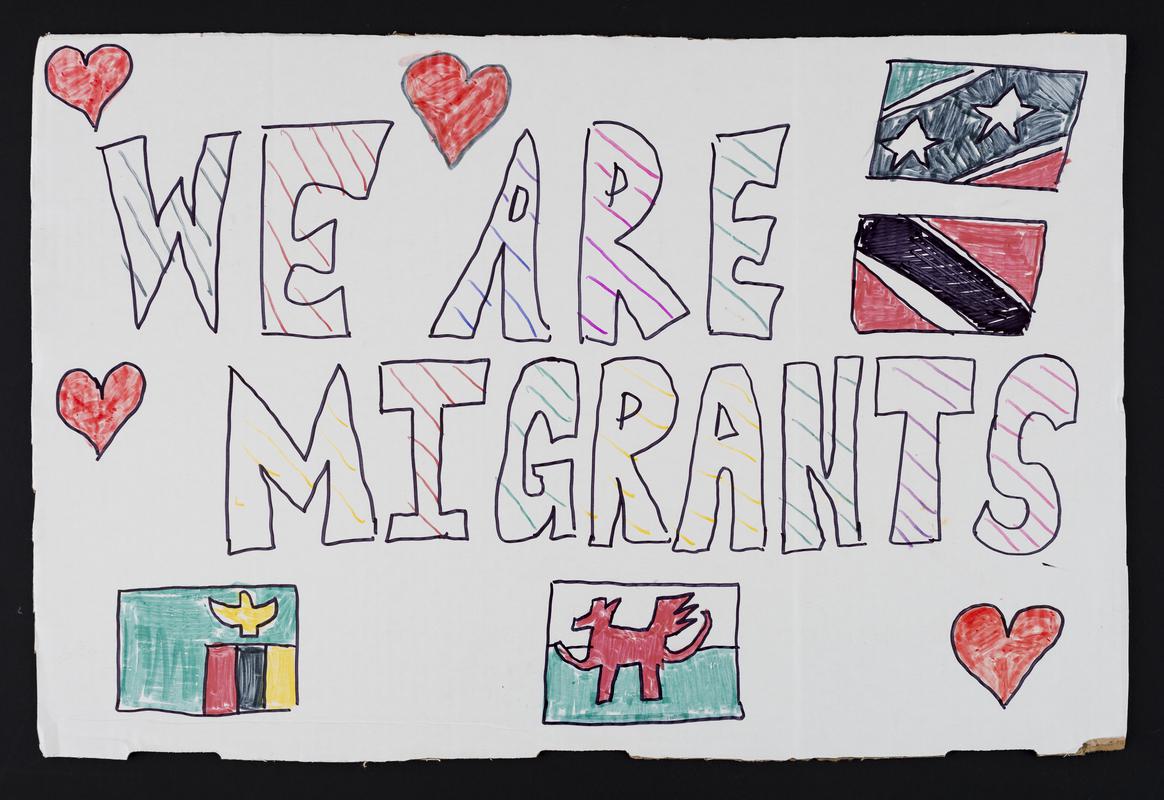 WE ARE
MIGRANTS